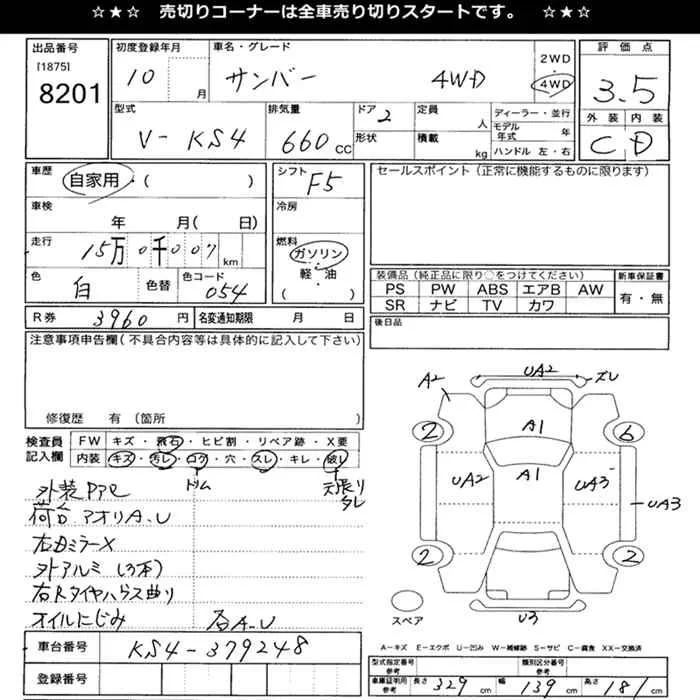 ☆★☆ 売切りコーナーは全車売り切りスタートです。 ☆★☆
出品番号
[1875]
8201
初度登録年月
10 月
車名・グレード
サンバー 4WD
2WD
4WD
評価点
3.5
外装 内装
C D
型式
V-KS4
排気量
660 cc
ドア 2
形状
定員 人
積載 kg
ディーラー・並行
モデル年式 年
ハンドル 左・右
車歴
自家用・( )
車検 年 月( 日)
走行 15万0千007 km
色 白 色替 色コード 054
シフト F5
冷房
燃料
ガソリン・
軽・油
( )
セールスポイント (正常に機能するものに限ります)
装備品 (純正品に限り○をつけてください)
PS PW ABS エアB AW
SR ナビ TV カワ
新車保証書
有・無
後日品
R券 3960 円 名変通知期限 月 日
注意事項申告欄 (不具合内容等は具体的に記入して下さい)
修復歴 有 (箇所 )
検査員記入欄
FW キズ・飛石・ヒビ割・リペア跡・X要
内装 キズ・汚レ・コゲ・穴・スレ・キレ・破レ
トリム
天張りタレ
外装PPセ
荷台アオリA、U
右ドミラーX
外アルミ (3本)
右Rタイヤハウス曲り
オイルにじみ
各A、U
車台番号 KS4-379248
登録番号
A2
UA2
ズレ
A1
2
6
A1
UA2
UA3
UA3
2
2
スペア
U3
A-キズ E-エクボ U-凹み W-補修跡 S-サビ C-腐食 XX-交換済
型式指定番号 参考
類別区分番号 参考
車庫証明用 参考 長さ 329 cm 幅 139 cm 高さ 181 cm